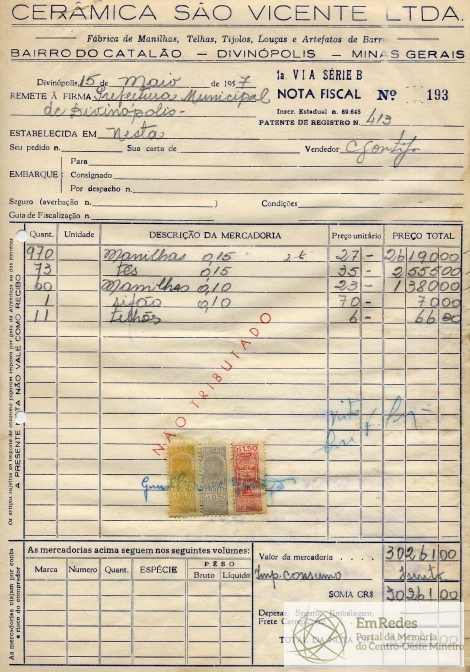 CERÂMICA SÃO VICENTE LTDA.
Fábrica de Manilhas, Telhas, Tijolos, Louças e Artefatos de Barro
BAIRRO DO CATALÃO — DIVINÓPOLIS — MINAS GERAIS
Divinópolis, 15 de Maio de 1957
1a. VIA SÉRIE B
REMETE À FIRMA Prefeitura Municipal
NOTA FISCAL Nº 193
de Divinópolis -
Inscr. Estadual n. 69.645
PATENTE DE REGISTRO N. 413
ESTABELECIDA EM Nesta
Seu pedido n. Sua carta de Vendedor
EMBARQUE: Para
Consignado
Por despacho n.
Seguro (averbação n. ) Condições
Guia de Fiscalização n.
Quant. Unidade DESCRIÇÃO DA MERCADORIA Preço unitário PREÇO TOTAL
970 Manilhas 0,15 27 - 26.190,00
73 tês 0,15 35 - 2.555,00
60 Manilhas 0,10 23 - 1.380,00
1 sifão 0,10 70 - 70,00
11 telhões 6 - 66,00
NÃO TRIBUTADO
A PRESENTE NOTA NÃO VALE COMO RECIBO
As mercadorias acima seguem nos seguintes volumes:
Marca Numero Quant. ESPÉCIE PÊSO
Bruto Líquido
As mercadorias viajam por conta
e risco do comprador
Valor da mercadoria . . . . 30261,00
Imp. consumo Isento
SOMA CR$ 30261,00
Despesas, Seguro, Embalagem,
Frete
TOTAL DA NOTA
EmRedes
Portal da Memória
do Centro-Oeste Mineiro